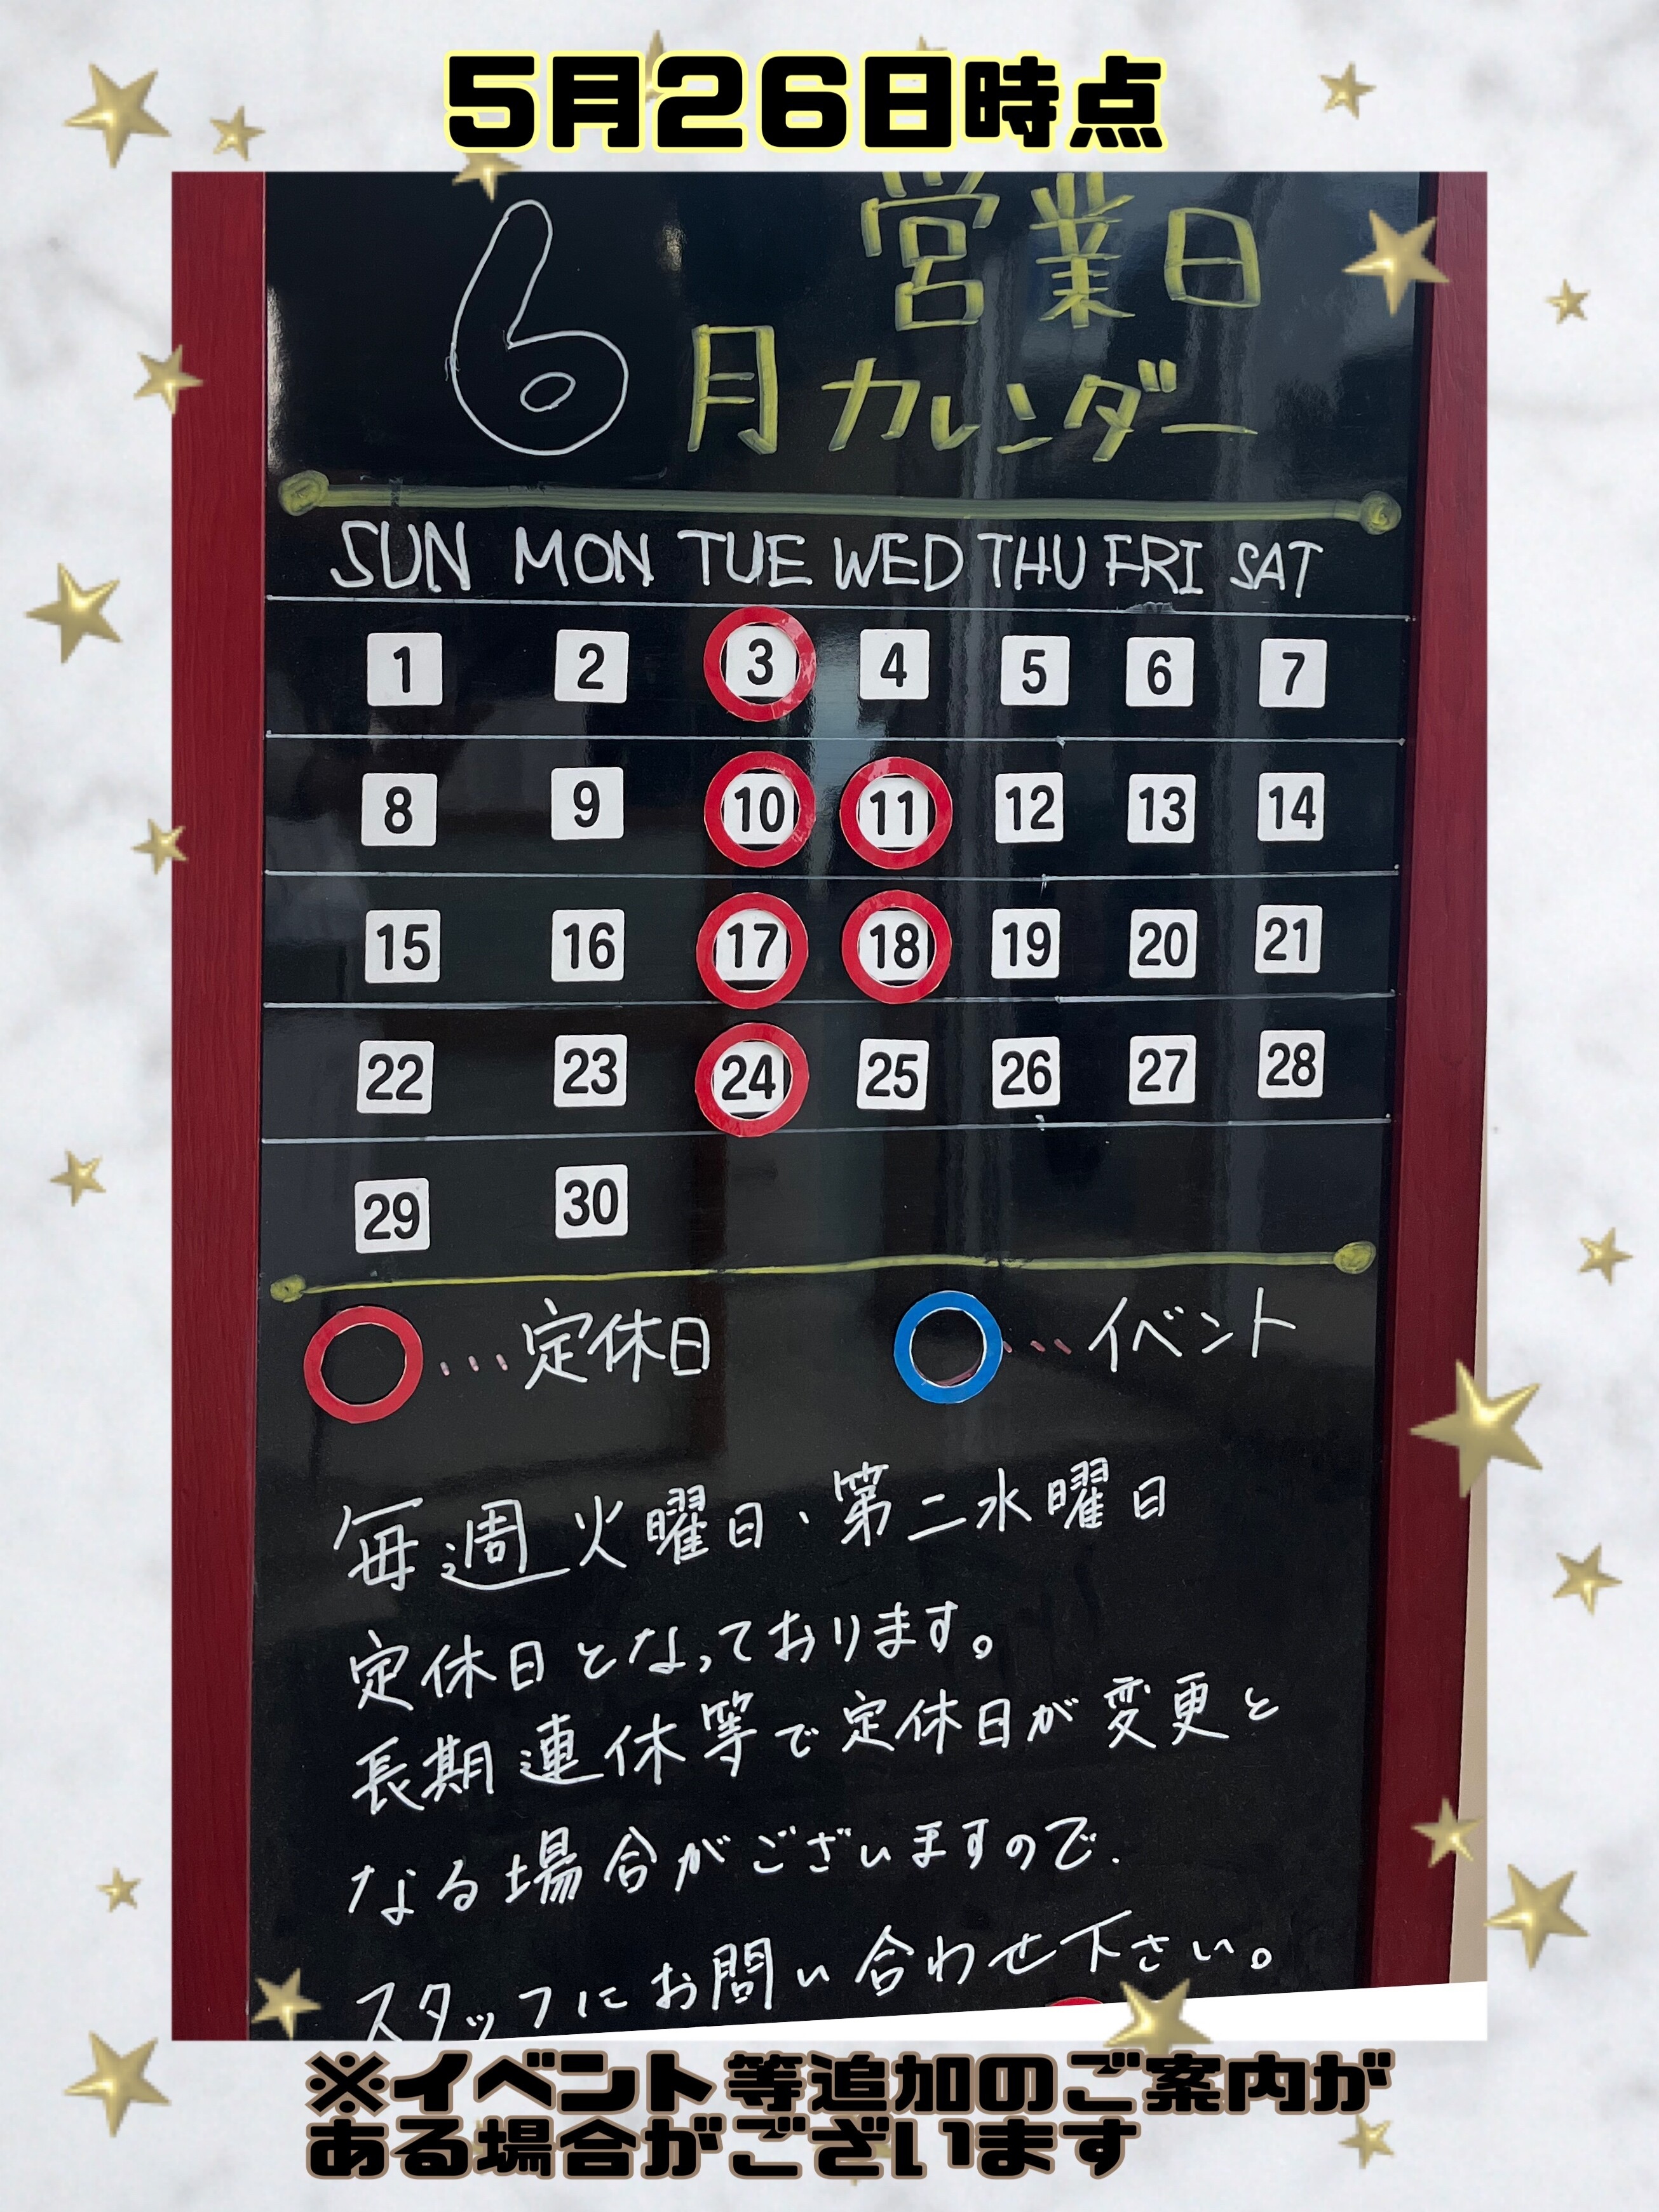 5月26日時点
営業日
6月カレンダー
SUN MON TUE WED THU FRI SAT
1 2 3 4 5 6 7
8 9 10 11 12 13 14
15 16 17 18 19 20 21
22 23 24 25 26 27 28
29 30
…定休日 …イベント
毎週火曜日、第二水曜日
定休日となっております。
長期連休等で定休日が変更と
なる場合がございますので、
スタッフにお問い合わせ下さい。
※イベント等追加のご案内が
ある場合がございます